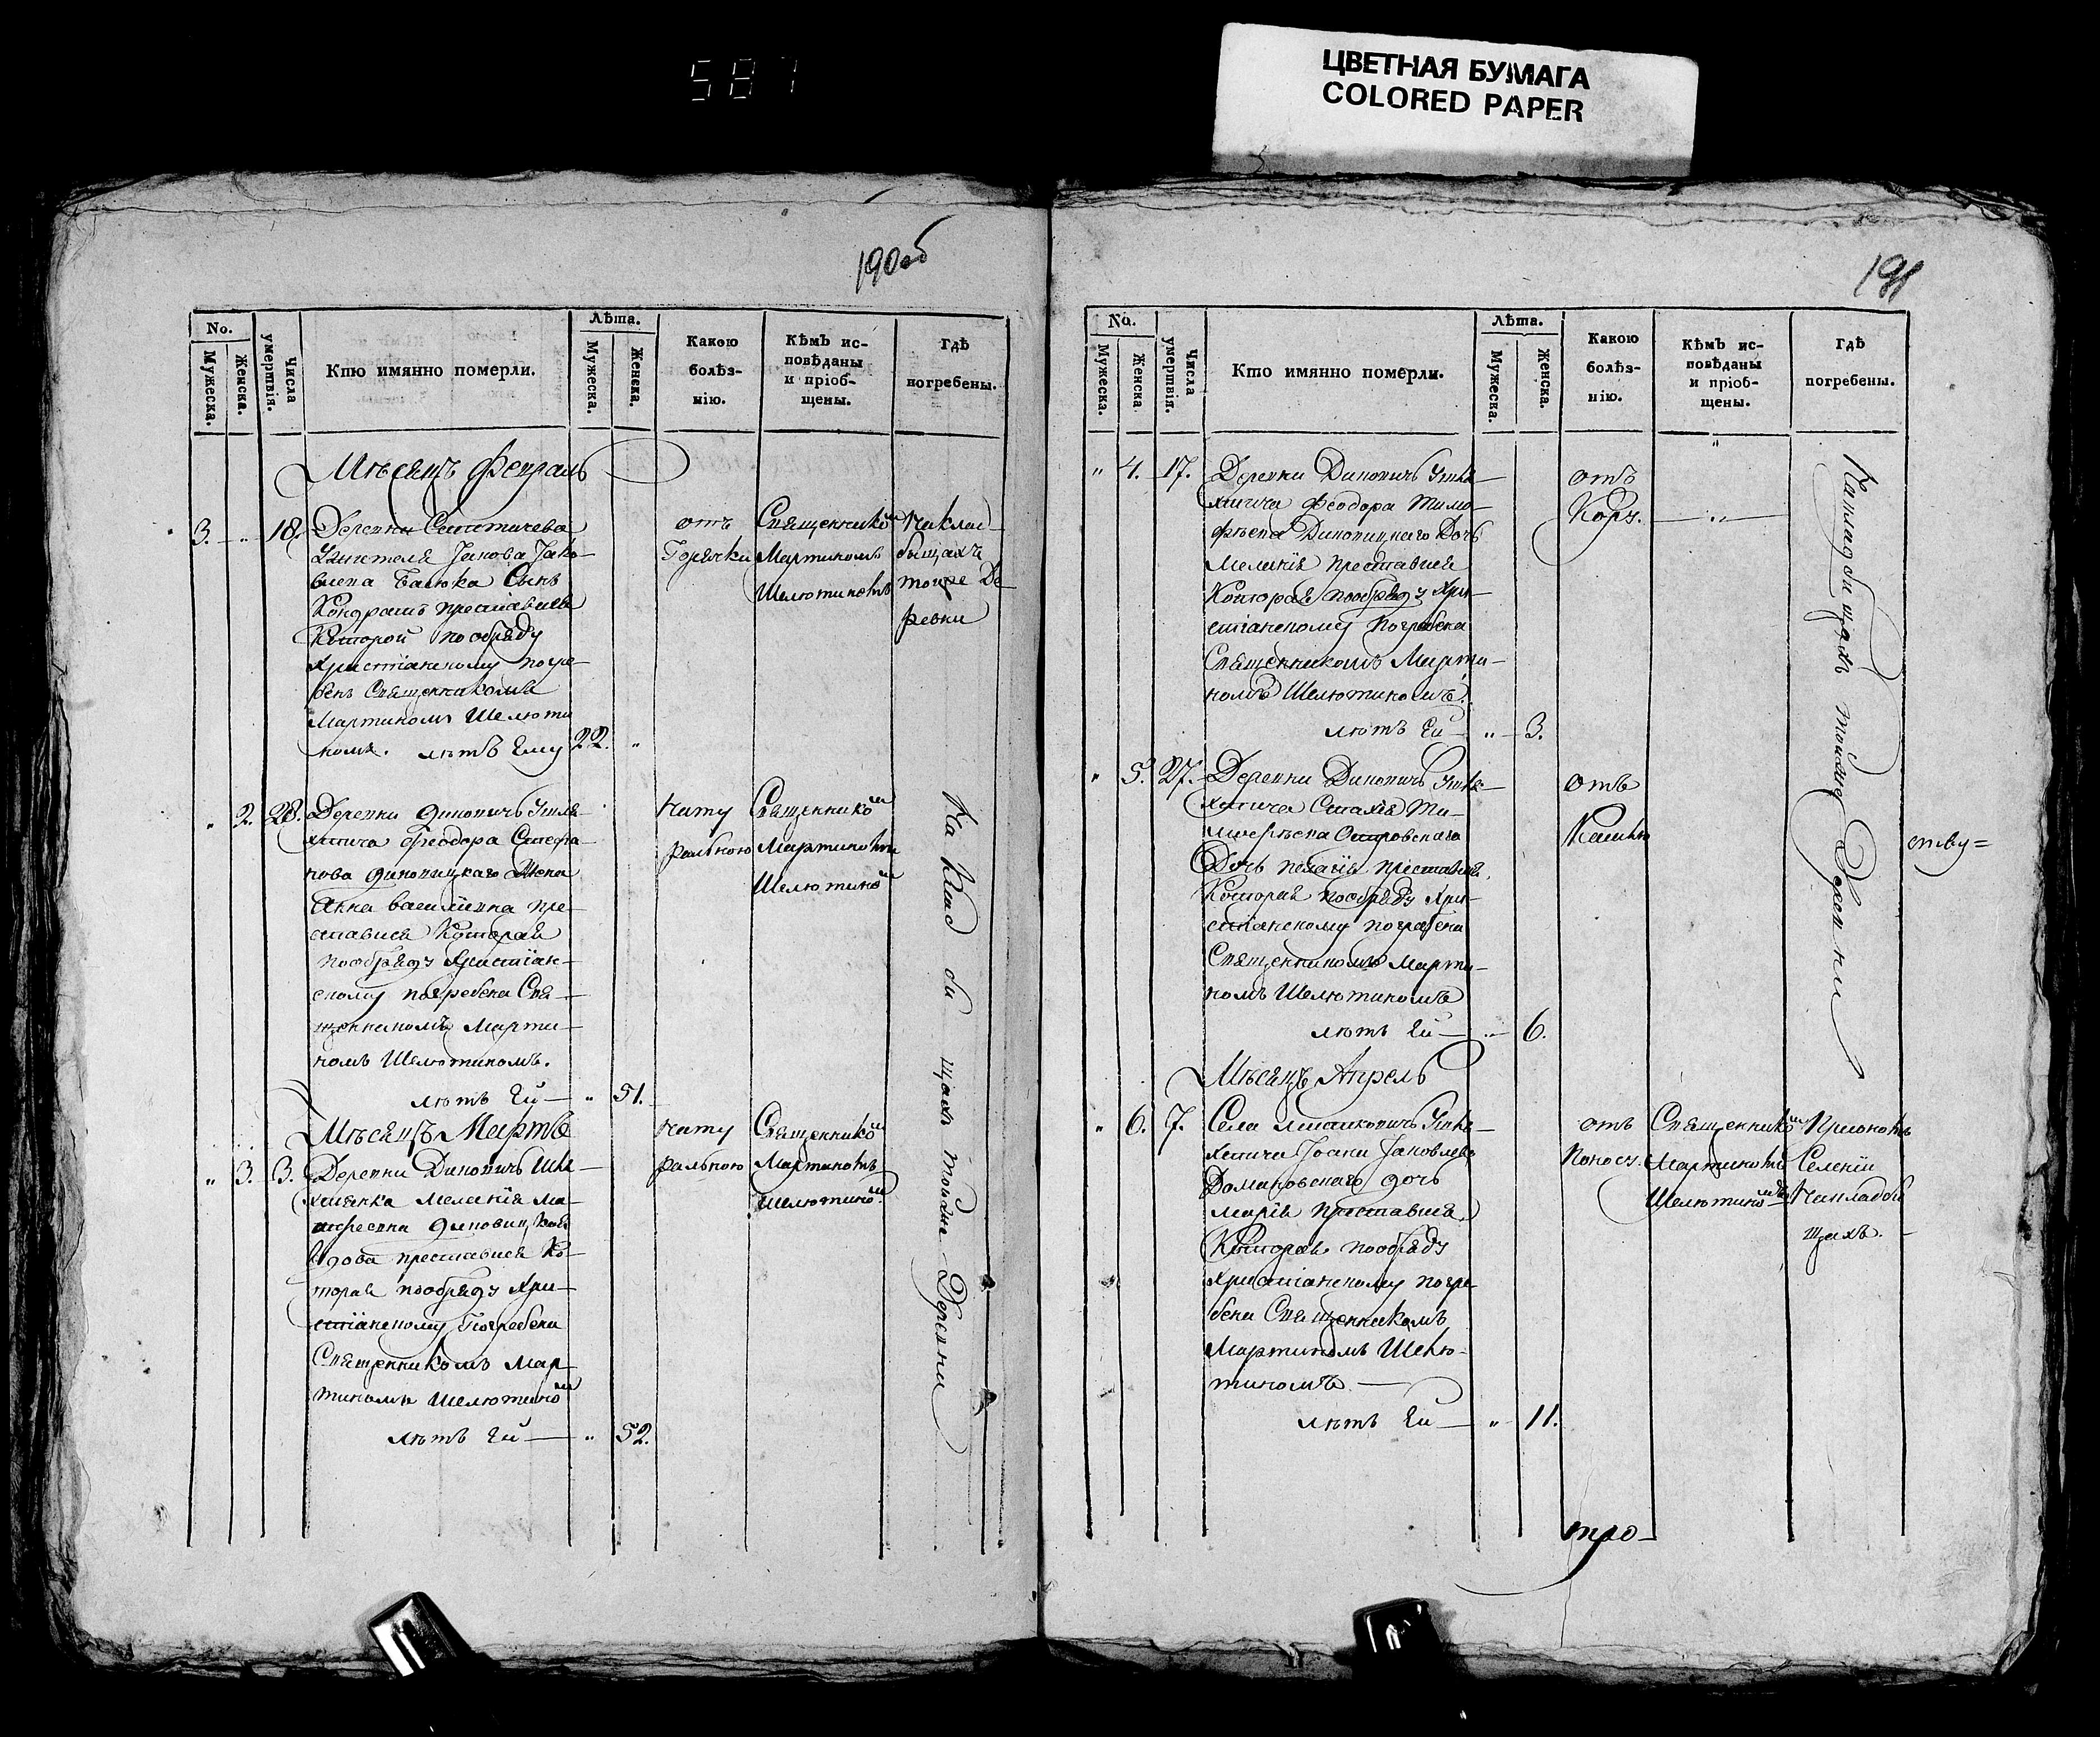 587
ЦВЕТНАЯ БУМАГА
COLORED PAPER
190об
No.
Мужеска.
Женска.
Числа умертвія.
Кто имянно померли.
Лѣта.
Мужеска.
Женска.
Какою болѣз-
нію.
Кѣмъ ис-
повѣданы
и пріоб-
щены.
Гдѣ
погребены.
Мѣсяцъ Февраль
3. " 18.
Деревни
Якова Яко-
влева Балюка Сынъ
Кондратъ преставися
Которой по обряду
Христіанскому погре-
бенъ Священникомъ
Мартиномъ Шелюти
номъ. лѣтъ Ему 22. "
отъ
Горячки
Священнико м
Мартиномъ
Шелютиномъ
На клад-
бищахъ
тоя же Де
ревни
" 2. 28.
Деревни Диновичъ Шля-
хтича Феодора Стефа-
нова Диновицкаго Жена
Анна преставися Которая
по обряду Христіан-
скому погребена Свя-
щенникомъ Марти-
номъ Шелютиномъ.
лѣтъ Ей — " 51.
Нату
ральною
Священнико м
Мартиномъ
Шелютино м
На клад би щахъ тоя же Деревни
Мѣсяцъ Мартъ
" 3. 3.
Деревни Диновичъ Шля-
хтянка Меланія Ма-
твеевна Диновицкая
Вдова преставися Ко-
торая по обряду Хри-
стіанскому Погребена
Священникомъ Мар-
тиномъ Шелютино м
лѣтъ Ей — " 52.
Нату
ральною
Священнико м
Мартиномъ
Шелютино м.
191
No.
Мужеска.
Женска.
Числа умертвія.
Кто имянно померли.
Лѣта.
Мужеска.
Женска.
Какою болѣз-
нію.
Кѣмъ ис-
повѣданы
и пріоб-
щены.
Гдѣ
погребены.
" 4. 17.
Деревни Диновичъ Шля-
хтича Феодора Тимо-
фѣева Диновицкаго Дочь
Меланія преставися
Которая по обряду Хри-
стіанскому погребена
Священникомъ Марти-
номъ Шелютиномъ.
лѣтъ Ей — " — 3.
отъ
Кору. — " —
На кладбищахъ тоя же Деревни
" 5. 27.
Деревни Диновичъ Шля-
хтича
Островскаго
Дочь Пелагія преставися.
Которая по обряду Хри-
стіанскому погребена
Священникомъ Марти-
номъ Шелютиномъ
лѣтъ Ей — " — 6.
отъ
Кашлю
ству=
Мѣсяцъ Апрель
" 6. 7.
Села Шля-
хтича Іоана Яковлева
Домаровскаго дочь
Марія преставися.
Которая по обряду
Христіанскому погре
бена Священникомъ
Мартиномъ Шелю-
тиномъ. —
лѣтъ Ей — " 11.
отъ
Поносу.
Священнико м
Мартиномъ
Шелютиномъ
Селеніи
На кладби
щахъ. -
тро-